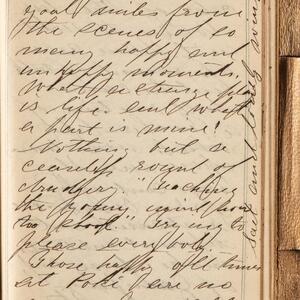 good miles from
the scenes of so
many happy and
unhappy moments.
What a strange play
is life. And what
a part is mine!
Nothing but a
ceaseless round of
drudgery. "Teaching
the young mind how
to shoot." Trying to
please every body.
Those happy old times
at Poke are no
sad and lonely